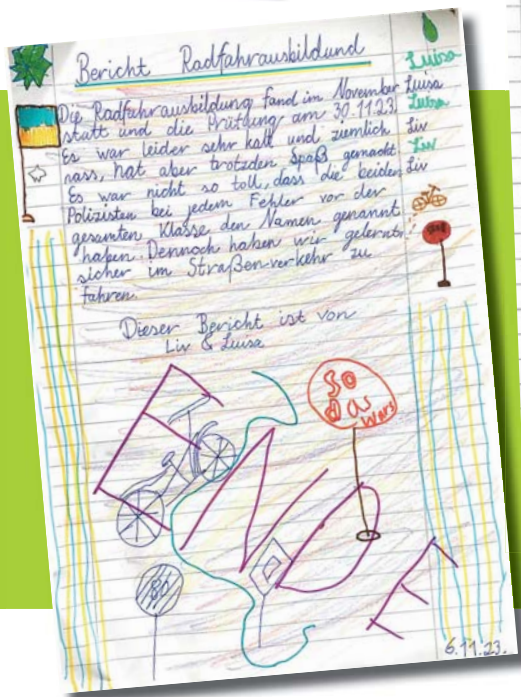 Bericht Radfahrausbildund
Luisa
Die Radfahrausbildung fand im November Luisa
statt und die Prüfung am 30.11.23. Luisa
Es war leider sehr kalt und ziemlich Liv
nass, hat aber trotzden Spaß gemacht. Liv
Es war nicht so toll, dass die beiden Liv
Polizisten bei jedem Fehler vor der
gesamten Klasse den Namen genannt
haben. Dennoch haben wir gelernt
sicher im Straßenverkehr zu
fahren.
Dieser Bericht ist von
Liv & Luisa
So
das
wars
80
ENDE
6.11.23.